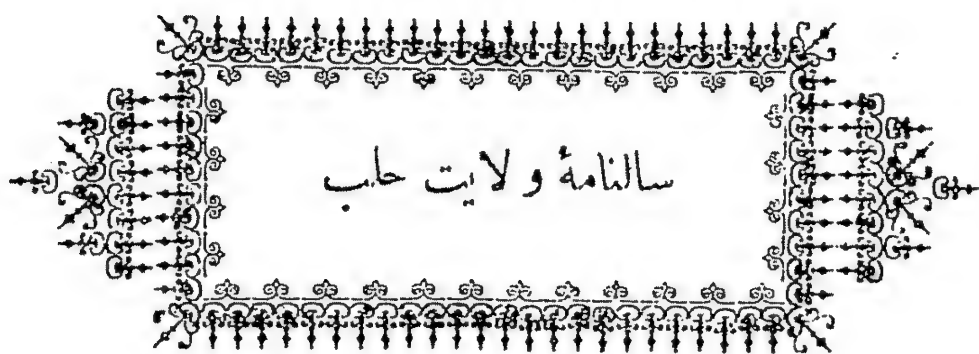 سالنامۀ ولايت حلب